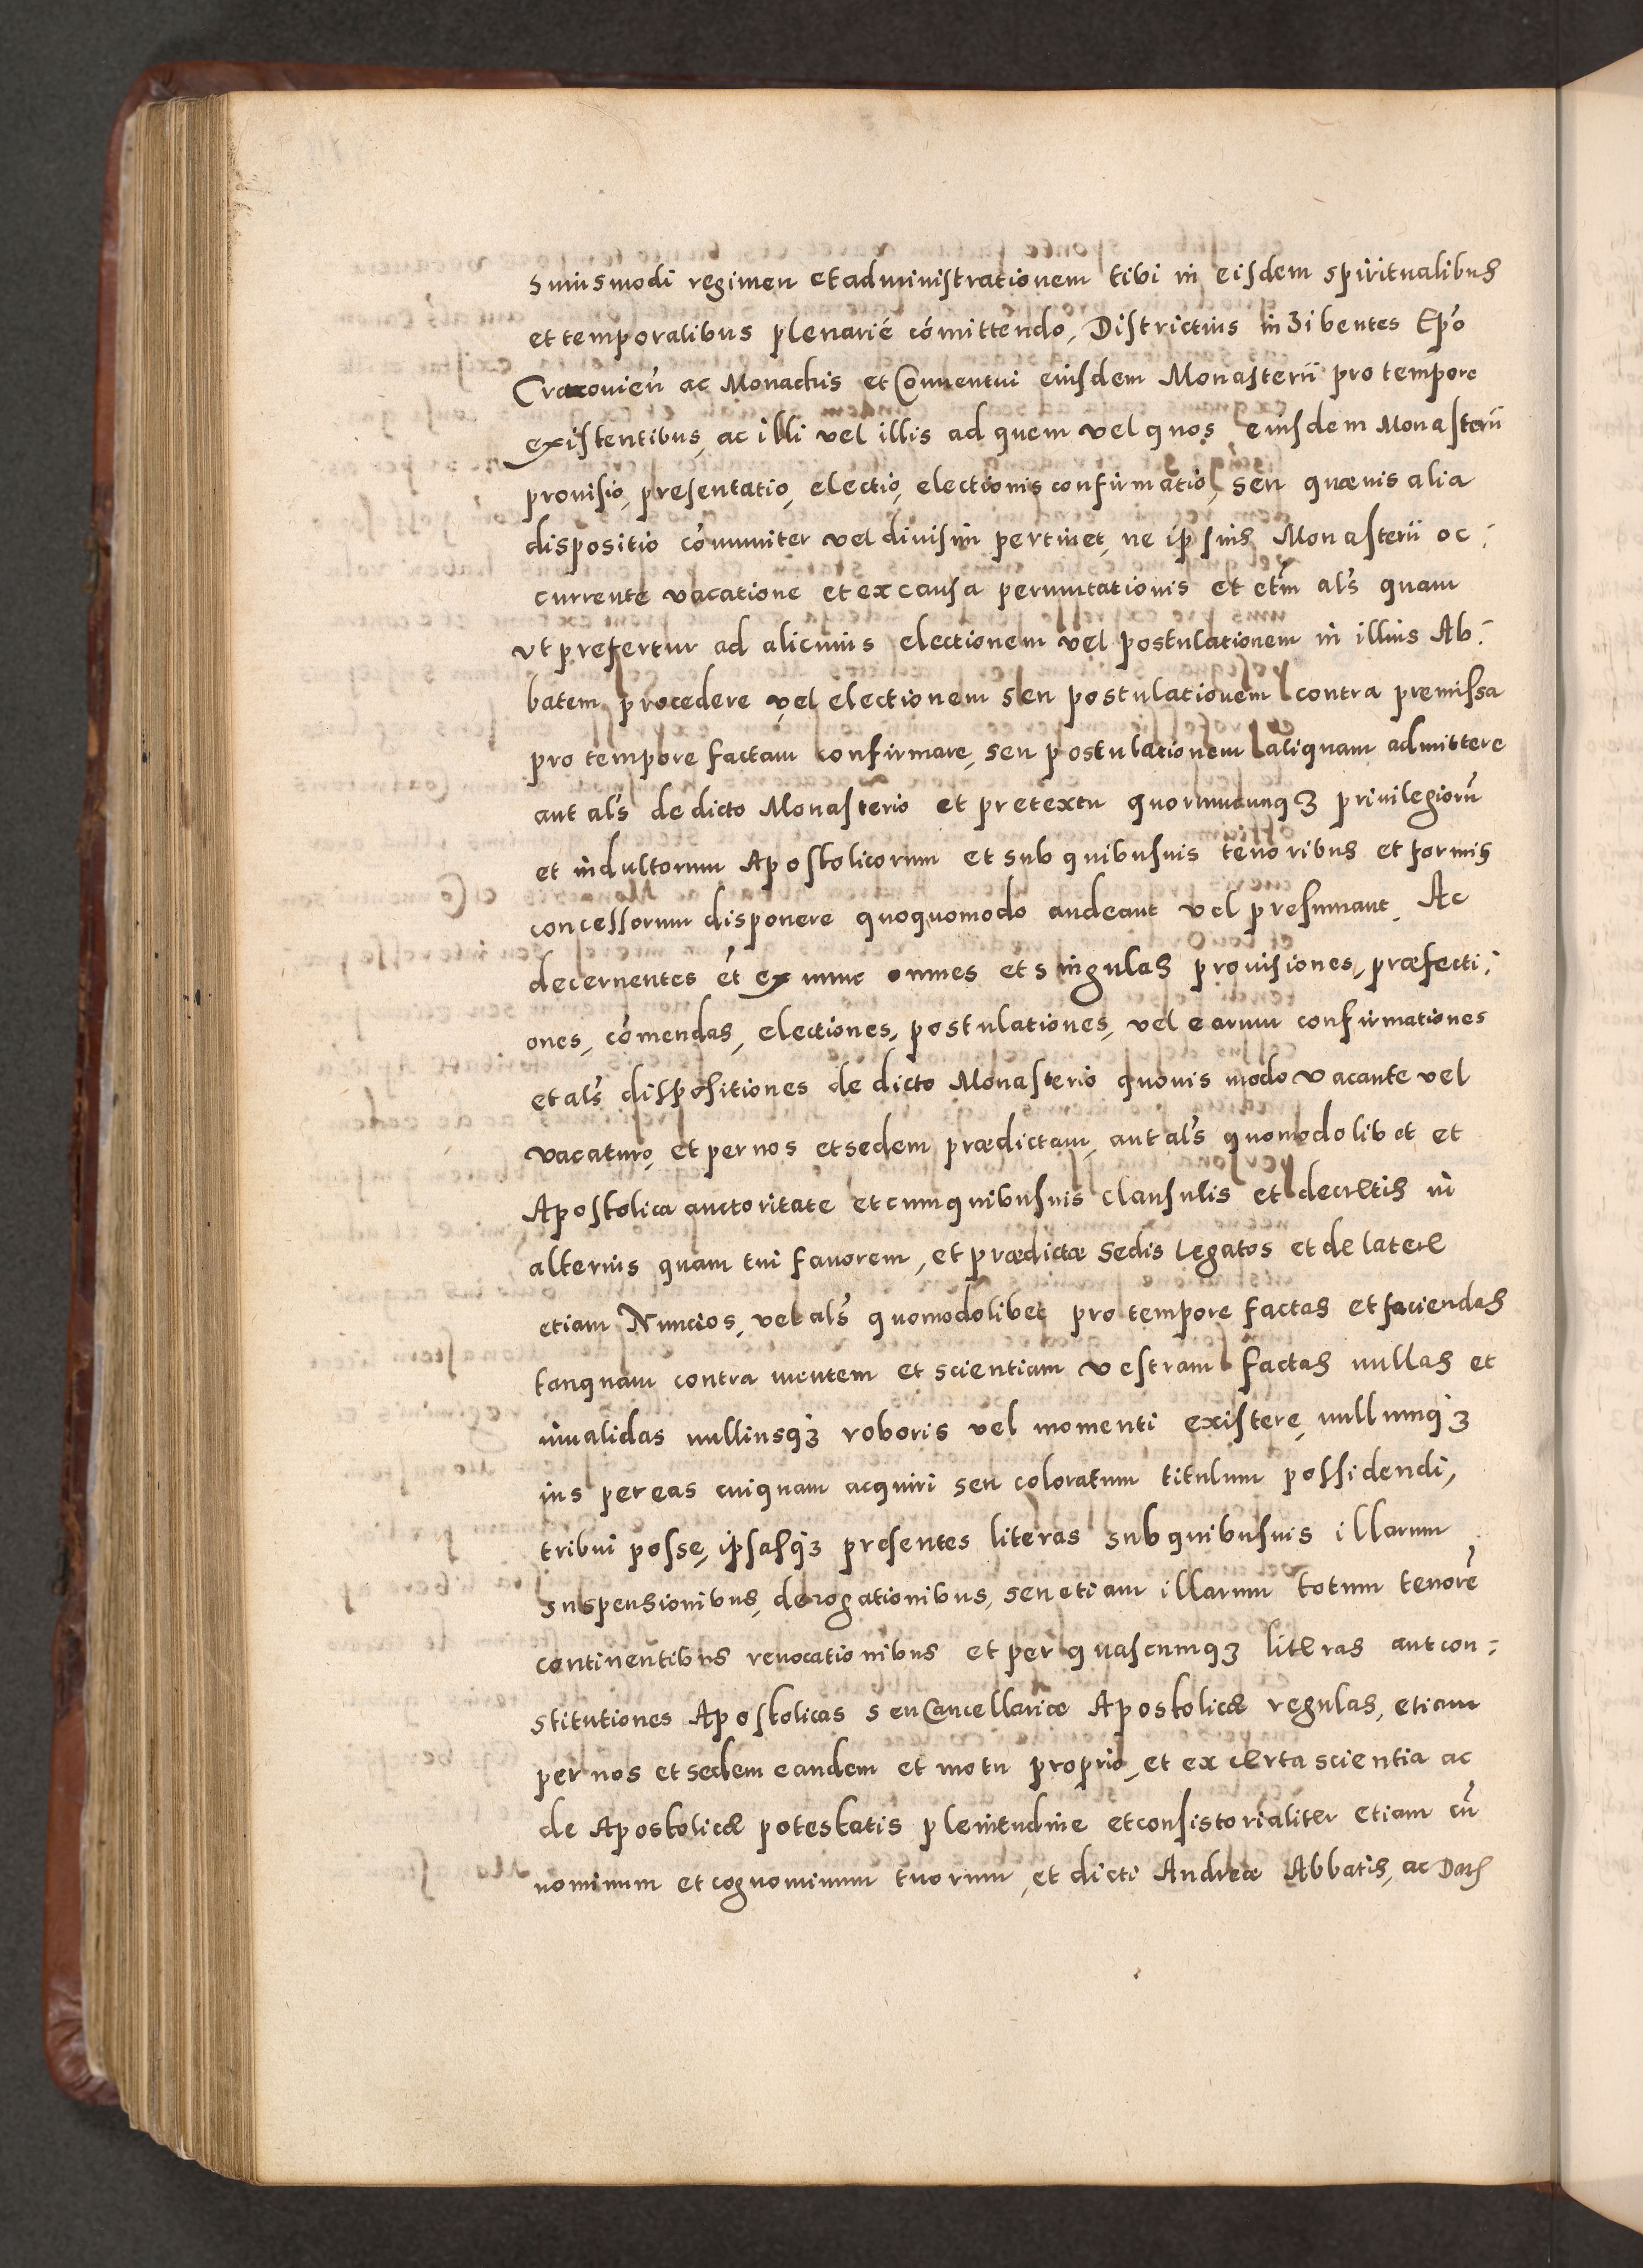 huiusmodi regimen et administrationem tibi in eisdem spiritualibus
et temporalibus plenarié cōmittendo, Districtius inhibentes Epō
Cracovieñ ac Monachis et Conuentui eiusdem Monasterii pro tempore
existentibus, ac illi vel illis ad quem vel quos eiusdem Monasterii
prouisio, presentatio, electio, electionis confirmatio, seu quæuis alia
dispositio cōmuniter vel diuisim pertinet, ne ipsius Monasterii oc:
currente vacatione et ex causa permutationis et etm̄ als̄ quam
vt prefertur ad alicuius electionem vel postulationem in illius Ab:
batem procedere vel electionem seu postulationem contra premissa
pro tempore factam confirmare, seu postulationem aliquam admittere
aut als̄ de dicto Monasterio et pretextu quorumcunqʒ priuilegiorū
et indultorum Apostolicorum et sub quibusuis tenoribus et formis
concessorum disponere quoquomodo audeant vel presumant, Ac
decernentes ét ex nunc omnes et singulas prouisiones, præfecti:
ones, cōmendas, electiones, postulationes, vel earum confirmationes
et als̄ dispositiones de dicto Monasterio quouis modo vacante vel
vacaturo, et per nos et sedem prædictam, aut als̄ quomodolibet et
Apostolica auctoritate et cum quibusuis clausulis et decretis in
alterius quam tui fauorem, et prædictæ Sedis legatos et de latere
etiam Nuncios, vel als̄ quomodolibet pro tempore factas et faciendas
tanquam contra mentem et scientiam vestram factas nullas et
inualidas nulliusqʒ roboris vel momenti existere, nullumqʒ
ius per eas cuiquam acquiri seu coloratum titulum possidendi,
tribui posse, ipsasqʒ presentes literas sub quibusuis illarum
suspensionibus, derogationibus, seu etiam illarum totum tenorē
continentibus reuocationibus et per quascumqʒ literas aut con:
stitutiones Apostolicas seu Cancellariæ Apostolicæ regulas, etiam
per nos et sedem eandem et motu proprio, et ex certa scientia ac
de Apostolicæ potestatis plenitudine et consistorialiter etiam cū
nominum et cognominum tuorum, et dicti Andreæ Abbatis, ac